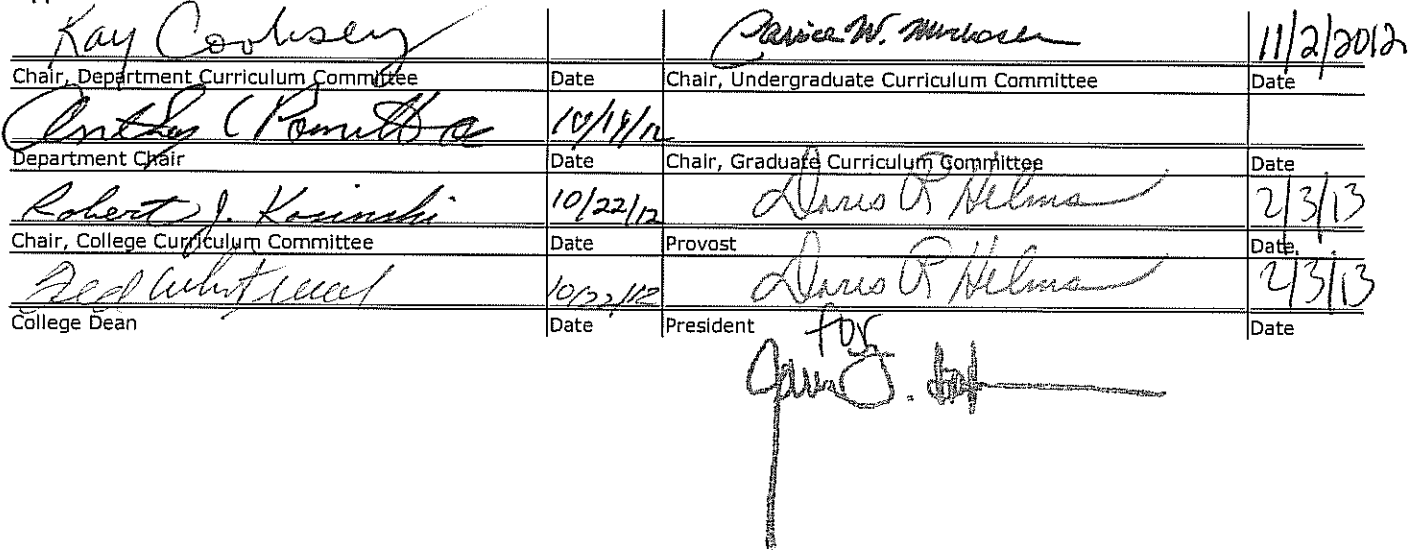 Kay Cooksey 11/2/2012
Chair, Department Curriculum Committee Date Chair, Undergraduate Curriculum Committee Date
10/19/12
Department Chair Date Chair, Graduate Curriculum Committee Date
Robert J. Kosinski 10/22/12 Doris R Helms 2/3/13
Chair, College Curriculum Committee Date Provost Date
10/22/12 Doris R Helms 2/3/13
College Dean Date President Date
for